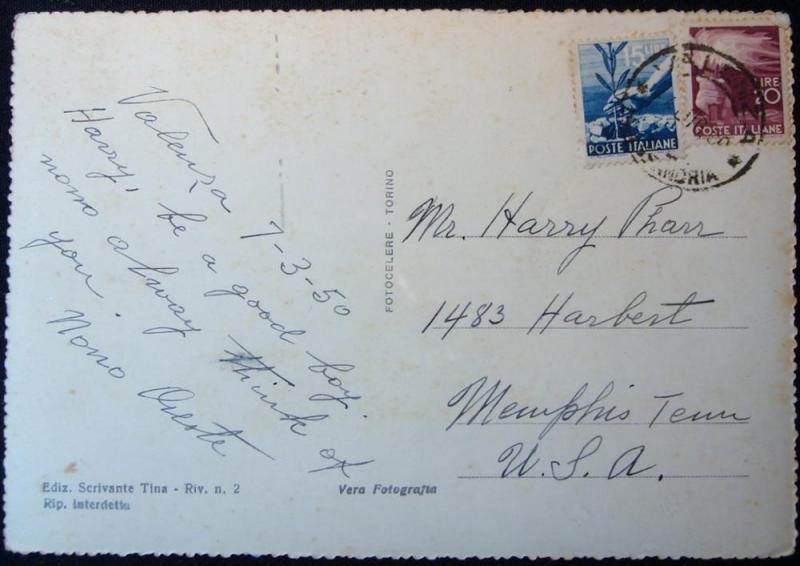 Valenza 7-3-50
Harry, be a good boy.
nono alway think of
you.
Nono Oreste
Ediz. Scrivante Tina - Riv. n. 2
Rip. interdetta
Vera Fotografia
FOTOCELERE - TORINO
15 LIRE
POSTE ITALIANE
LIRE
POSTE ITALIANE
Mr. Harry Pharr
1483 Harbert
Memphis Tenn
U.S.A.